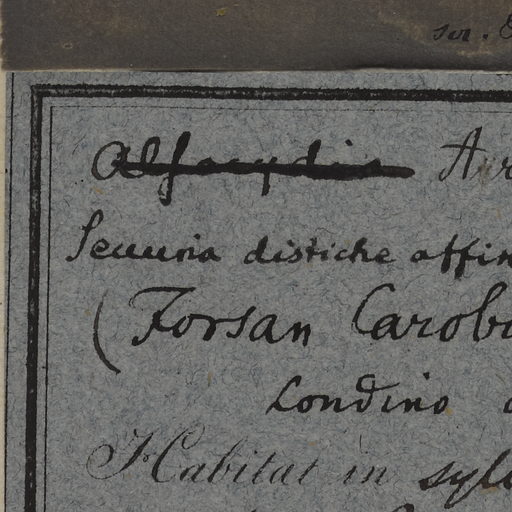 ser.
Alfacydia A
Securia distiche affin
(Forsan Carob
Londino
Habitat in sylv